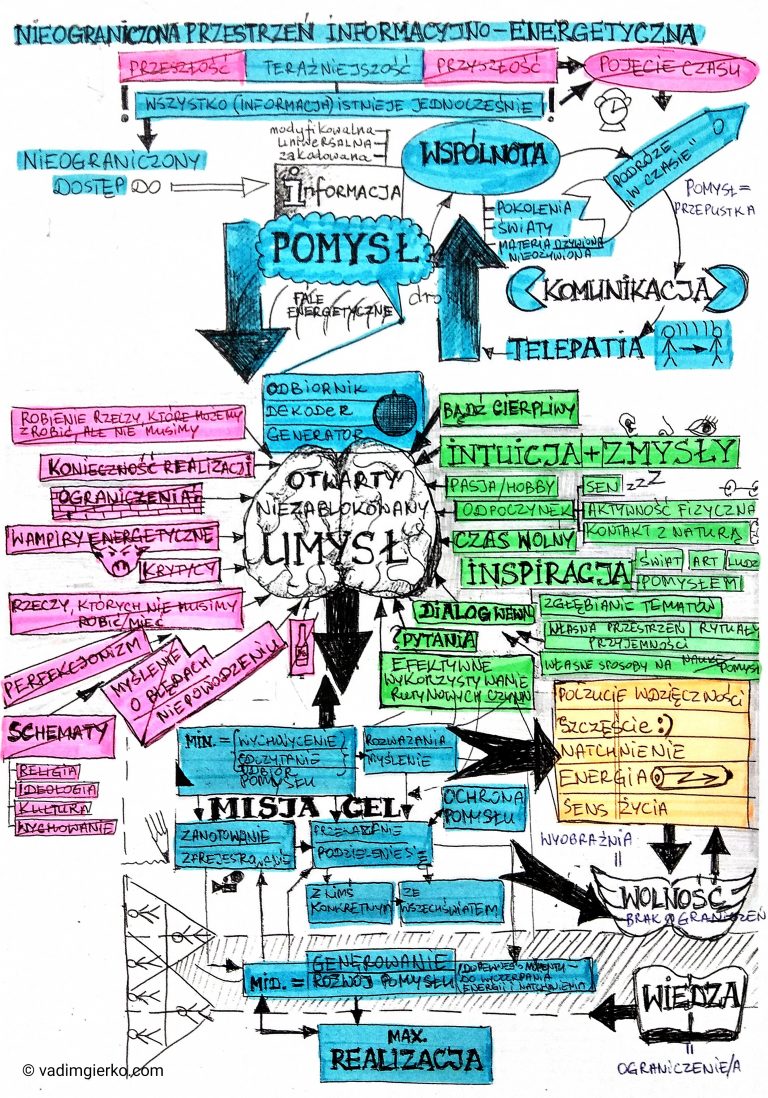 NIEOGRANICZONA PRZESTRZEŃ INFORMACYJNO-ENERGETYCZNA
PRZESZŁOŚĆ
TERAŹNIEJSZOŚĆ
PRZYSZŁOŚĆ
POJĘCIE CZASU
! WSZYSTKO (INFORMACJA) ISTNIEJE JEDNOCZEŚNIE !
NIEOGRANICZONY
DOSTĘP DO
modyfikowalna
uniwersalna
zakodowana
INFORMACJA
WSPÓLNOTA
PODRÓŻE
"W CZASIE"
POMYSŁ=
PRZEPUSTKA
POKOLENIA
ŚWIATY
MATERIA OŻYWIONA
NIEOŻYWIONA
POMYSŁ
FALE
ENERGETYCZNE
KOMUNIKACJA
TELEPATIA
ODBIORNIK
DEKODER
GENERATOR
OTWARTY
NIEZABLOKOWANY
UMYSŁ
ROBIENIE RZECZY, KTÓRE MOŻEMY
ZROBIĆ, ALE NIE MUSIMY
KONIECZNOŚĆ REALIZACJI
OGRANICZENIA
WAMPIRY ENERGETYCZNE
KRYTYCY
RZECZY, KTÓRYCH NIE MUSIMY
ROBIĆ/MIEĆ
PERFEKCJONIZM
MYŚLENIE
O BŁĘDACH
NIEPOWODZENIU
SCHEMATY
RELIGIA
IDEOLOGIA
KULTURA
WYCHOWANIE
BĄDŹ CIERPLIWY
INTUICJA + ZMYSŁY
PASJA/HOBBY
SEN zzZ
ODPOCZYNEK
AKTYWNOŚĆ FIZYCZNA
KONTAKT Z NATURĄ
CZAS WOLNY
INSPIRACJA
ŚWIAT
ART
LUDZ
POMYSŁEM
DIALOG WEWN
ZGŁĘBIANIE TEMATÓW
? PYTANIA
WŁASNA PRZESTRZEŃ RYTUAŁY
PRZYJEMNOŚCI
WŁASNE SPOSOBY NA NAUKĘ POMYSŁ
EFEKTYWNE
WYKORZYSTYWANIE
RUTYNOWYCH CZYNN
POCZUCIE WDZIĘCZNOŚCI
SZCZĘŚCIE :)
NATCHNIENIE
ENERGIA
SENS ŻYCIA
MIN. =
WYCHWYCENIE
ODCZYTANIE
ODBIÓR
POMYSŁU
ROZWAŻANIA
MYŚLENIE
MISJA CEL
OCHRONA
POMYSŁU
ZANOTOWANIE
ZAREJESTROWANIE
PRZEKAZANIE
PODZIELENIE SIĘ
Z KIMŚ
KONKRETNYM
ZE
WSZECHŚWIATEM
WYOBRAŹNIA
=
WOLNOŚĆ
BRAK OGRANICZEŃ
MID. =
GENEROWANIE
ROZWÓJ POMYSŁU
/DO PEWNEGO MOMENTU -
DO WYCZERPANIA
ENERGII I NATCHNIENIA
WIEDZA
=
OGRANICZENIE/A
MAX.
REALIZACJA
© vadimgierko.com